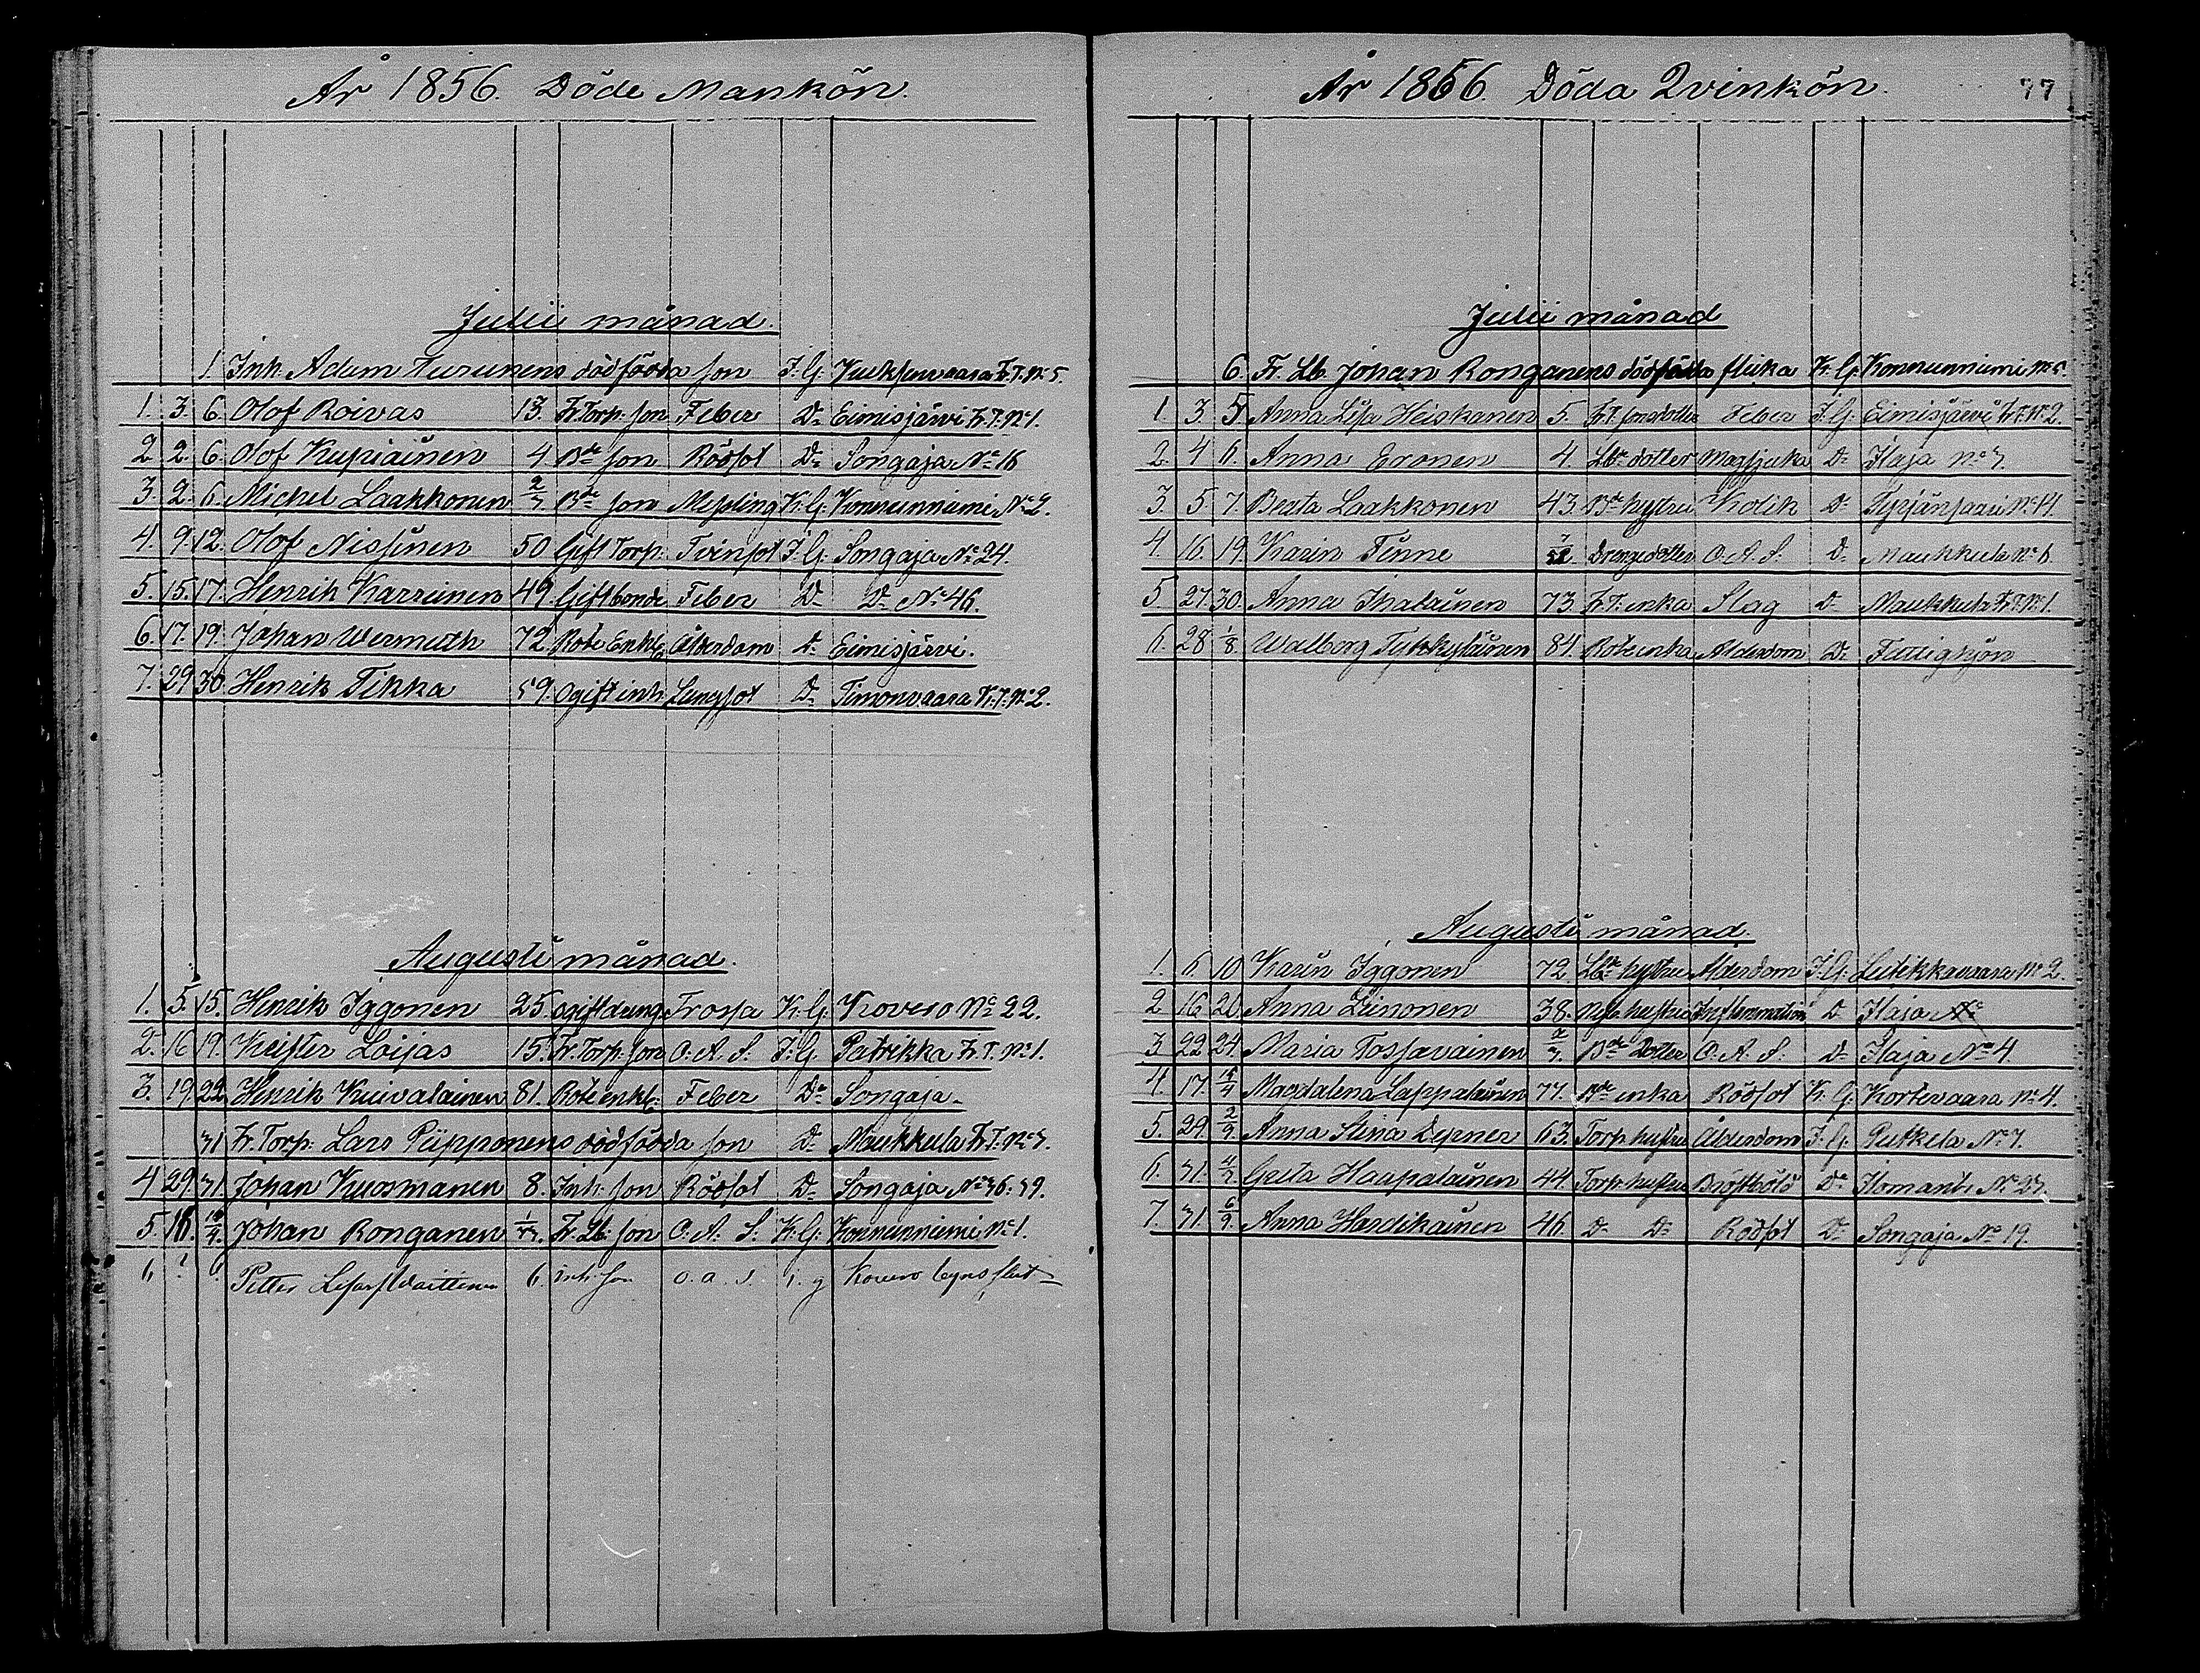 År 1856. Döde Mankön
Julii månad.
1. Inh. Adam Turunens dödfödda son I. G. Vuoksenvaara Fr. T. No 5.
1. 3. 6. Olof Roivas 13. Fr. Torp. son Feber Do Eimisjärvi Fr. T. No 1.
2. 2. 6. Olof Kupiainen 4 Bde son Rödsot Do Songaja No 16
3. 2. 6. Michel Laakkonen 2/7 Bde son Messling K. G. Konnunniemi No 2.
4. 9. 12. Olof Nissinen 50 Gift Torp. Tvinsot I. G. Songaja No 24.
5. 15. 17. Henrik Karreinen 49. Gift bonde Feber Do Do No 46.
6. 17. 19. Johan Wermuth 72 Rote Enkl. Ålderdom Do Eimisjärvi.
7. 29 30. Henrik Tikka 59. Ogift inh. Lungsot Do Timonvaara Fr. T. No 2.
Augusti månad.
1. 5. 15. Henrik Iggonen 25. ogift dreng Frossa K. G. Kovero No 22.
2. 16 19. Keister Loijas 15. Fr. Torp. son O. A. S. I. G. Patrikka Fr. T. No 1.
3. 19. 22. Henrik Kuivalainen 81. Rote enkl. Feber Do Songaja.
31 Fr. Torp. Lars Piipponens dödfödda son Do Maukkula Fr. T. No 3.
4 29. 31 Johan Kuosmanen 8. Inh. son Rödsot Do Songaja No 36. 39.
5. 18. Johan Ronganen Fr. Lb. son O. A. S. K. G. Konnunniemi No 1.
6 Petter 6. inh. son o. a. s. i. g Kovero
År 1856. Döda Qvinkön. 77
Julii månad
6. Fr. Lb. Johan Ronganens dödfödda flicka K. G. Konnunniemi No 5.
1. 3. 5. Anna Lisa Heiskanen 5. Fr. T. sons dotter Feber I. G. Eimisjärvi Fr. T. No 2.
2. 4 6. Anna Eronen 4. Lbde dotter Magsjuka Do Ilaja No 7.
3. 5. 7. Berta Laakkonen 43. Bde hustru Kolik Do No 14.
4. 16. 19. Karin Tinne Drenge dotter O. A. S. Do Maukkula No 6.
5. 27. 30. Anna Ihalainen 73 Fr. T. enka Slag Do Maukkula Fr. T. No 1.
6. 28 1/8. Walborg Tykkyläinen 84. Rote enka Ålderdom Do Fattighjon
Augusti månad.
1. 6. 10 Karin Iggonen 72. Lbde hustru Ålderdom I. G. Lutikkavaara No 2.
2 16 20. Anna Leinonen 38. hustru Inflammation Do Ilaja No
3 22 24. Maria Tossavainen 2/7. Bde Dotter O. A. S. Do Ilaja No 4
4. 17. Magdalena Lappalainen 77. Bde enka Rödsot K. G. Kortevaara No 4.
5. 29. 2/9. Anna Stina Depner 63. Torp. hustru Ålderdom I. G. Putkela No 7.
6. 31. 4/9. Greta Haapalainen 44. Torp. hustru Bröstböld Do Ilomants No 27.
7. 31. 6/9. Anna Hardikainen 46. Do Do Rödsot Do Songaja No 19.